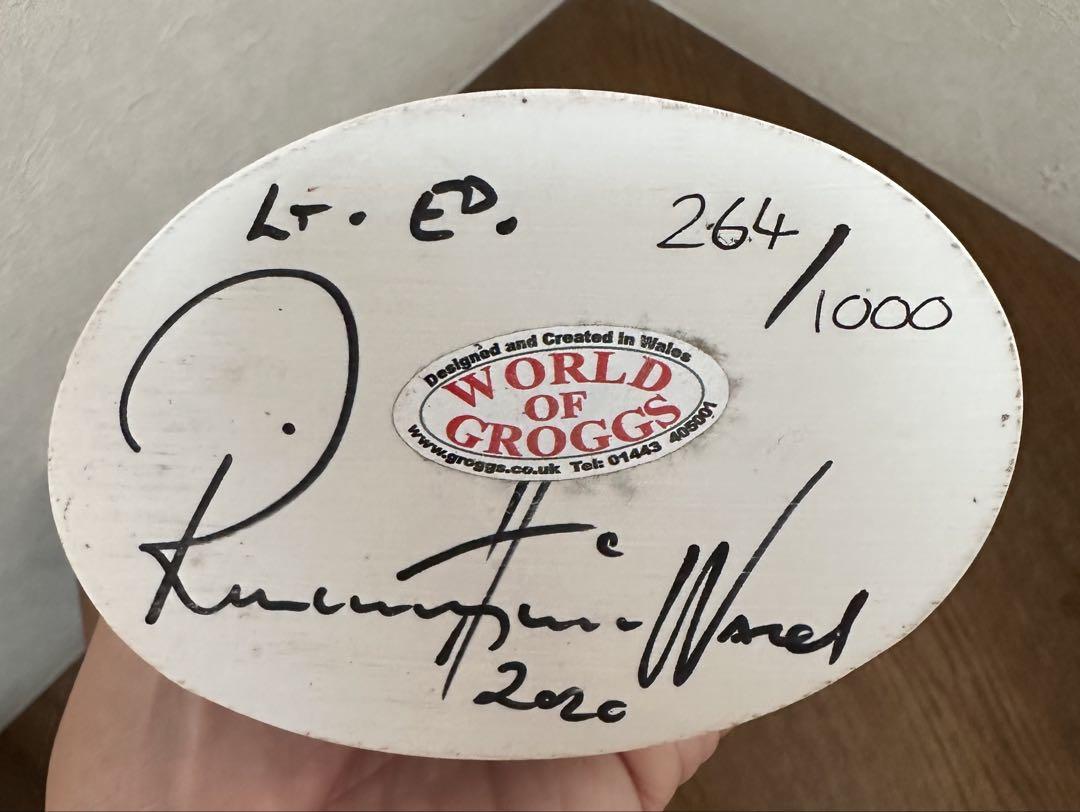 LT. ED. 264/1000
Designed and Created in Wales
WORLD
OF
GROGGS
www.groggs.co.uk Tel: 01443 405001
Ward
2020